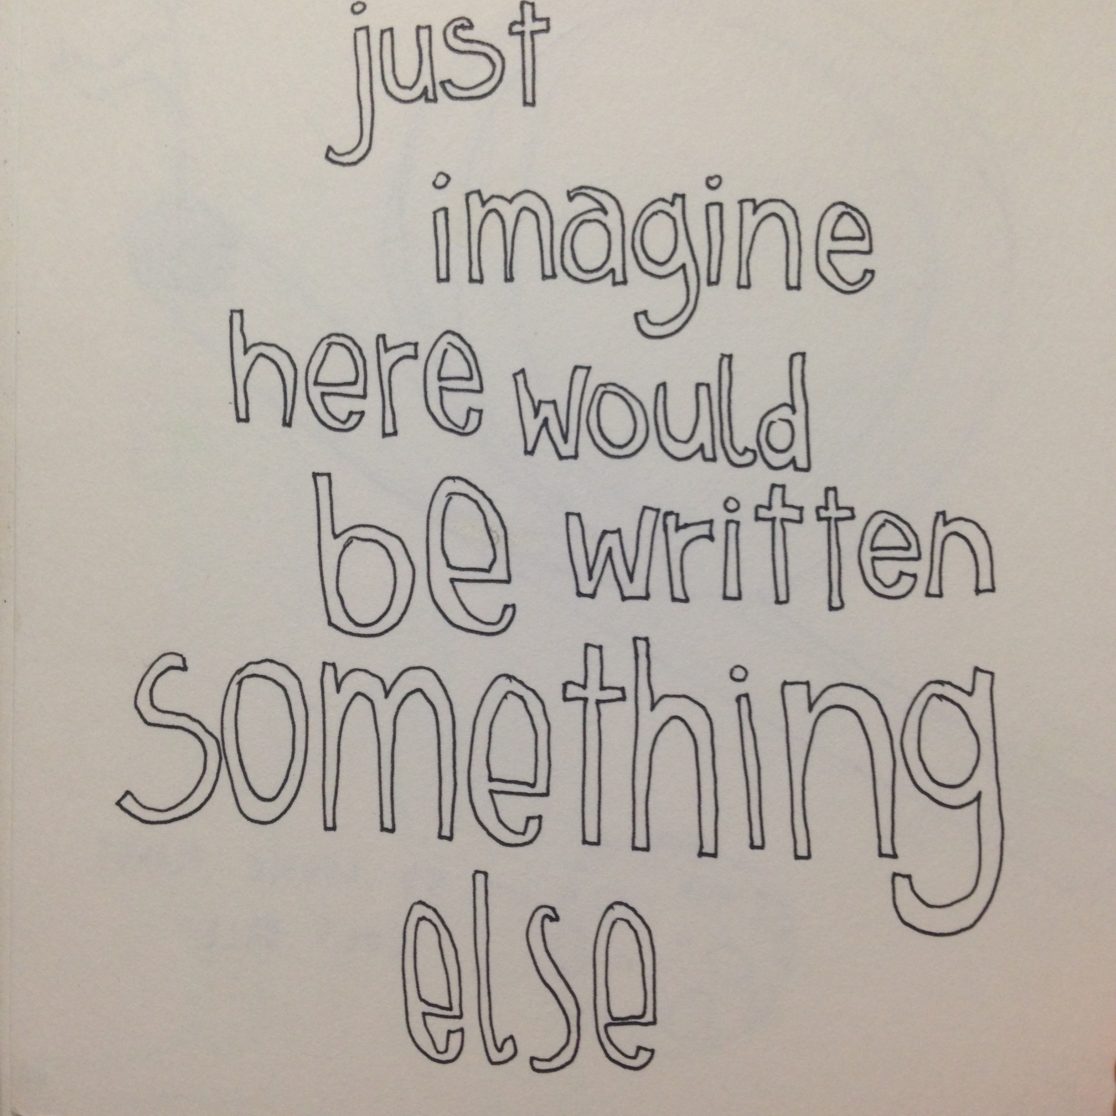 just
imagine
here would
be written
something
else